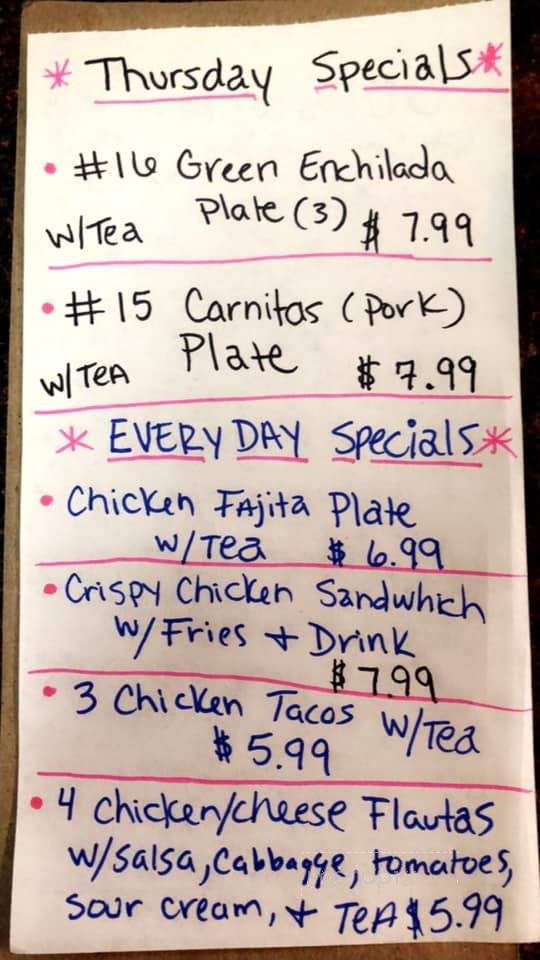 * Thursday Specials*
• #16 Green Enchilada
Plate (3)
W/Tea $ 7.99
• #15 Carnitas (Pork)
Plate
W/TeA $ 7.99
* EVERYDAY Specials*
• Chicken FAjita Plate
W/Tea $ 6.99
• Crispy Chicken Sandwhich
W/Fries + Drink
$ 7.99
• 3 Chicken Tacos W/Tea
$ 5.99
• 4 chicken/cheese Flautas
W/salsa, Cabbagge, tomatoes,
sour cream, + TeA $5.99